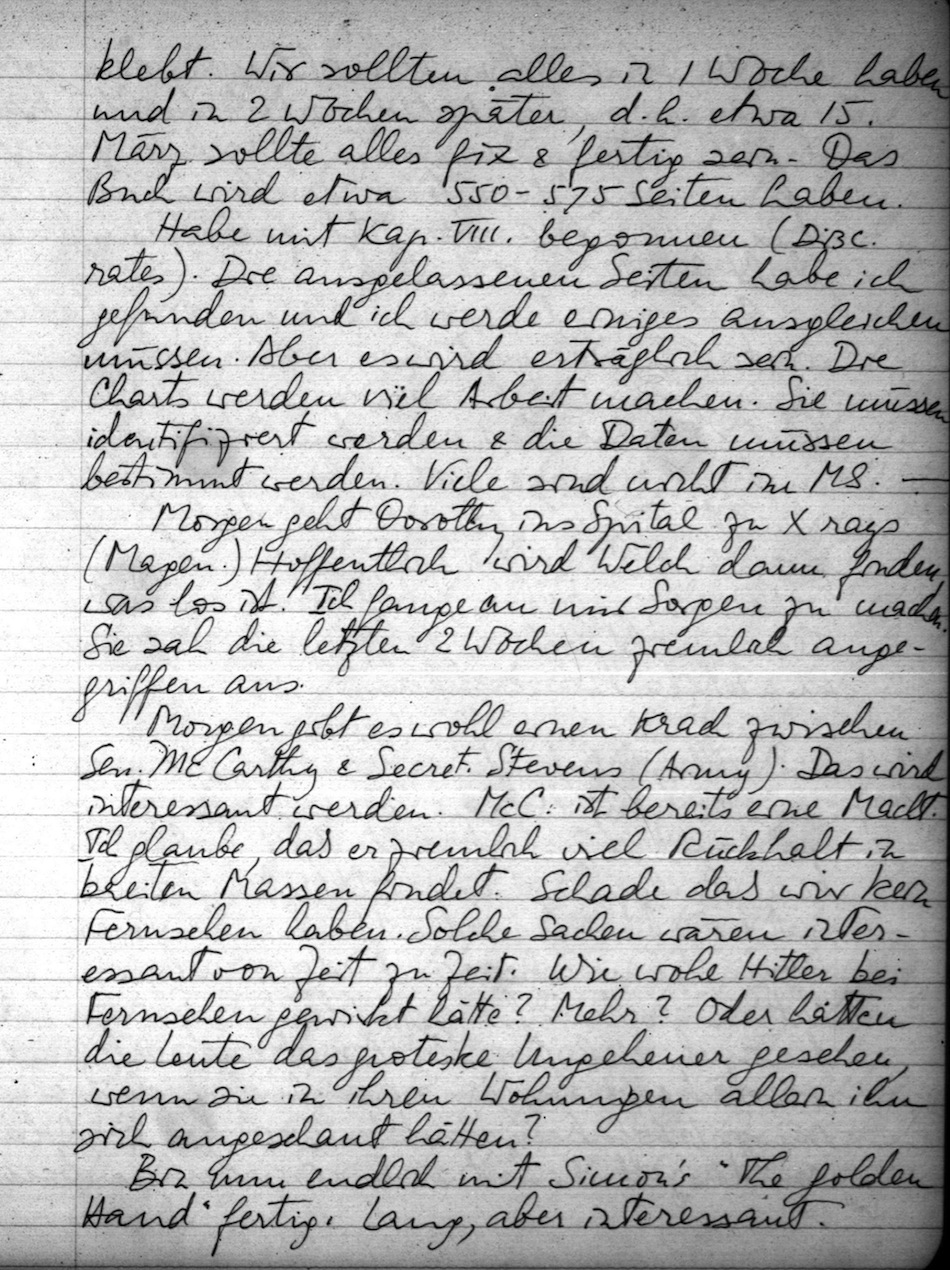 klebt. Wir sollten alles in 1 Woche haben
und in 2 Wochen später, d.h. etwa 15.
März sollte alles fix & fertig sein. Das
Buch wird etwa 550-575 Seiten haben.
Habe mit Kap. VIII. begonnen (Disc.
rates). Die ausgelassenen Seiten habe ich
gefunden und ich werde einiges ausgleichen
müssen. Aber es wird erträglich sein. Die
Charts werden viel Arbeit machen. Sie müssen
identifiziert werden & die Daten müssen
bestimmt werden. Viele sind nicht im MS. —
Morgen geht Dorothy ins Spital zu X rays
(Magen.) Hoffentlich wird Welch dann finden
was los ist. Ich fange an mir Sorgen zu machen.
Sie sah die letzten 2 Wochen ziemlich ange-
griffen aus.
Morgen gibt es wohl einen Krach zwischen
Sen. McCarthy & Secret. Stevens (Army). Das wird
interessant werden. McC. ist bereits eine Macht.
Ich glaube, das er ziemlich viel Rückhalt in
breiten Massen findet. Schade das wir kein
Fernsehen haben. Solche Sachen wären inter-
essant von Zeit zu Zeit. Wie wohl Hitler bei
Fernsehen gewirkt hätte? Mehr? Oder hätten
die Leute das groteske Ungeheuer gesehen,
wenn sie in ihren Wohnungen allein ihn
sich angeschaut hätten?
Bin nun endlich mit Simon's "The golden
Hand" fertig. Lang, aber interessant.